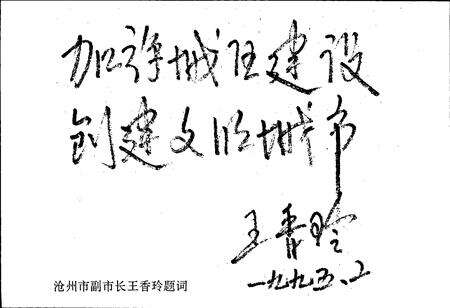 加强城区建设
创建文明城市
王香玲
一九九五.2
沧州市副市长王香玲题词